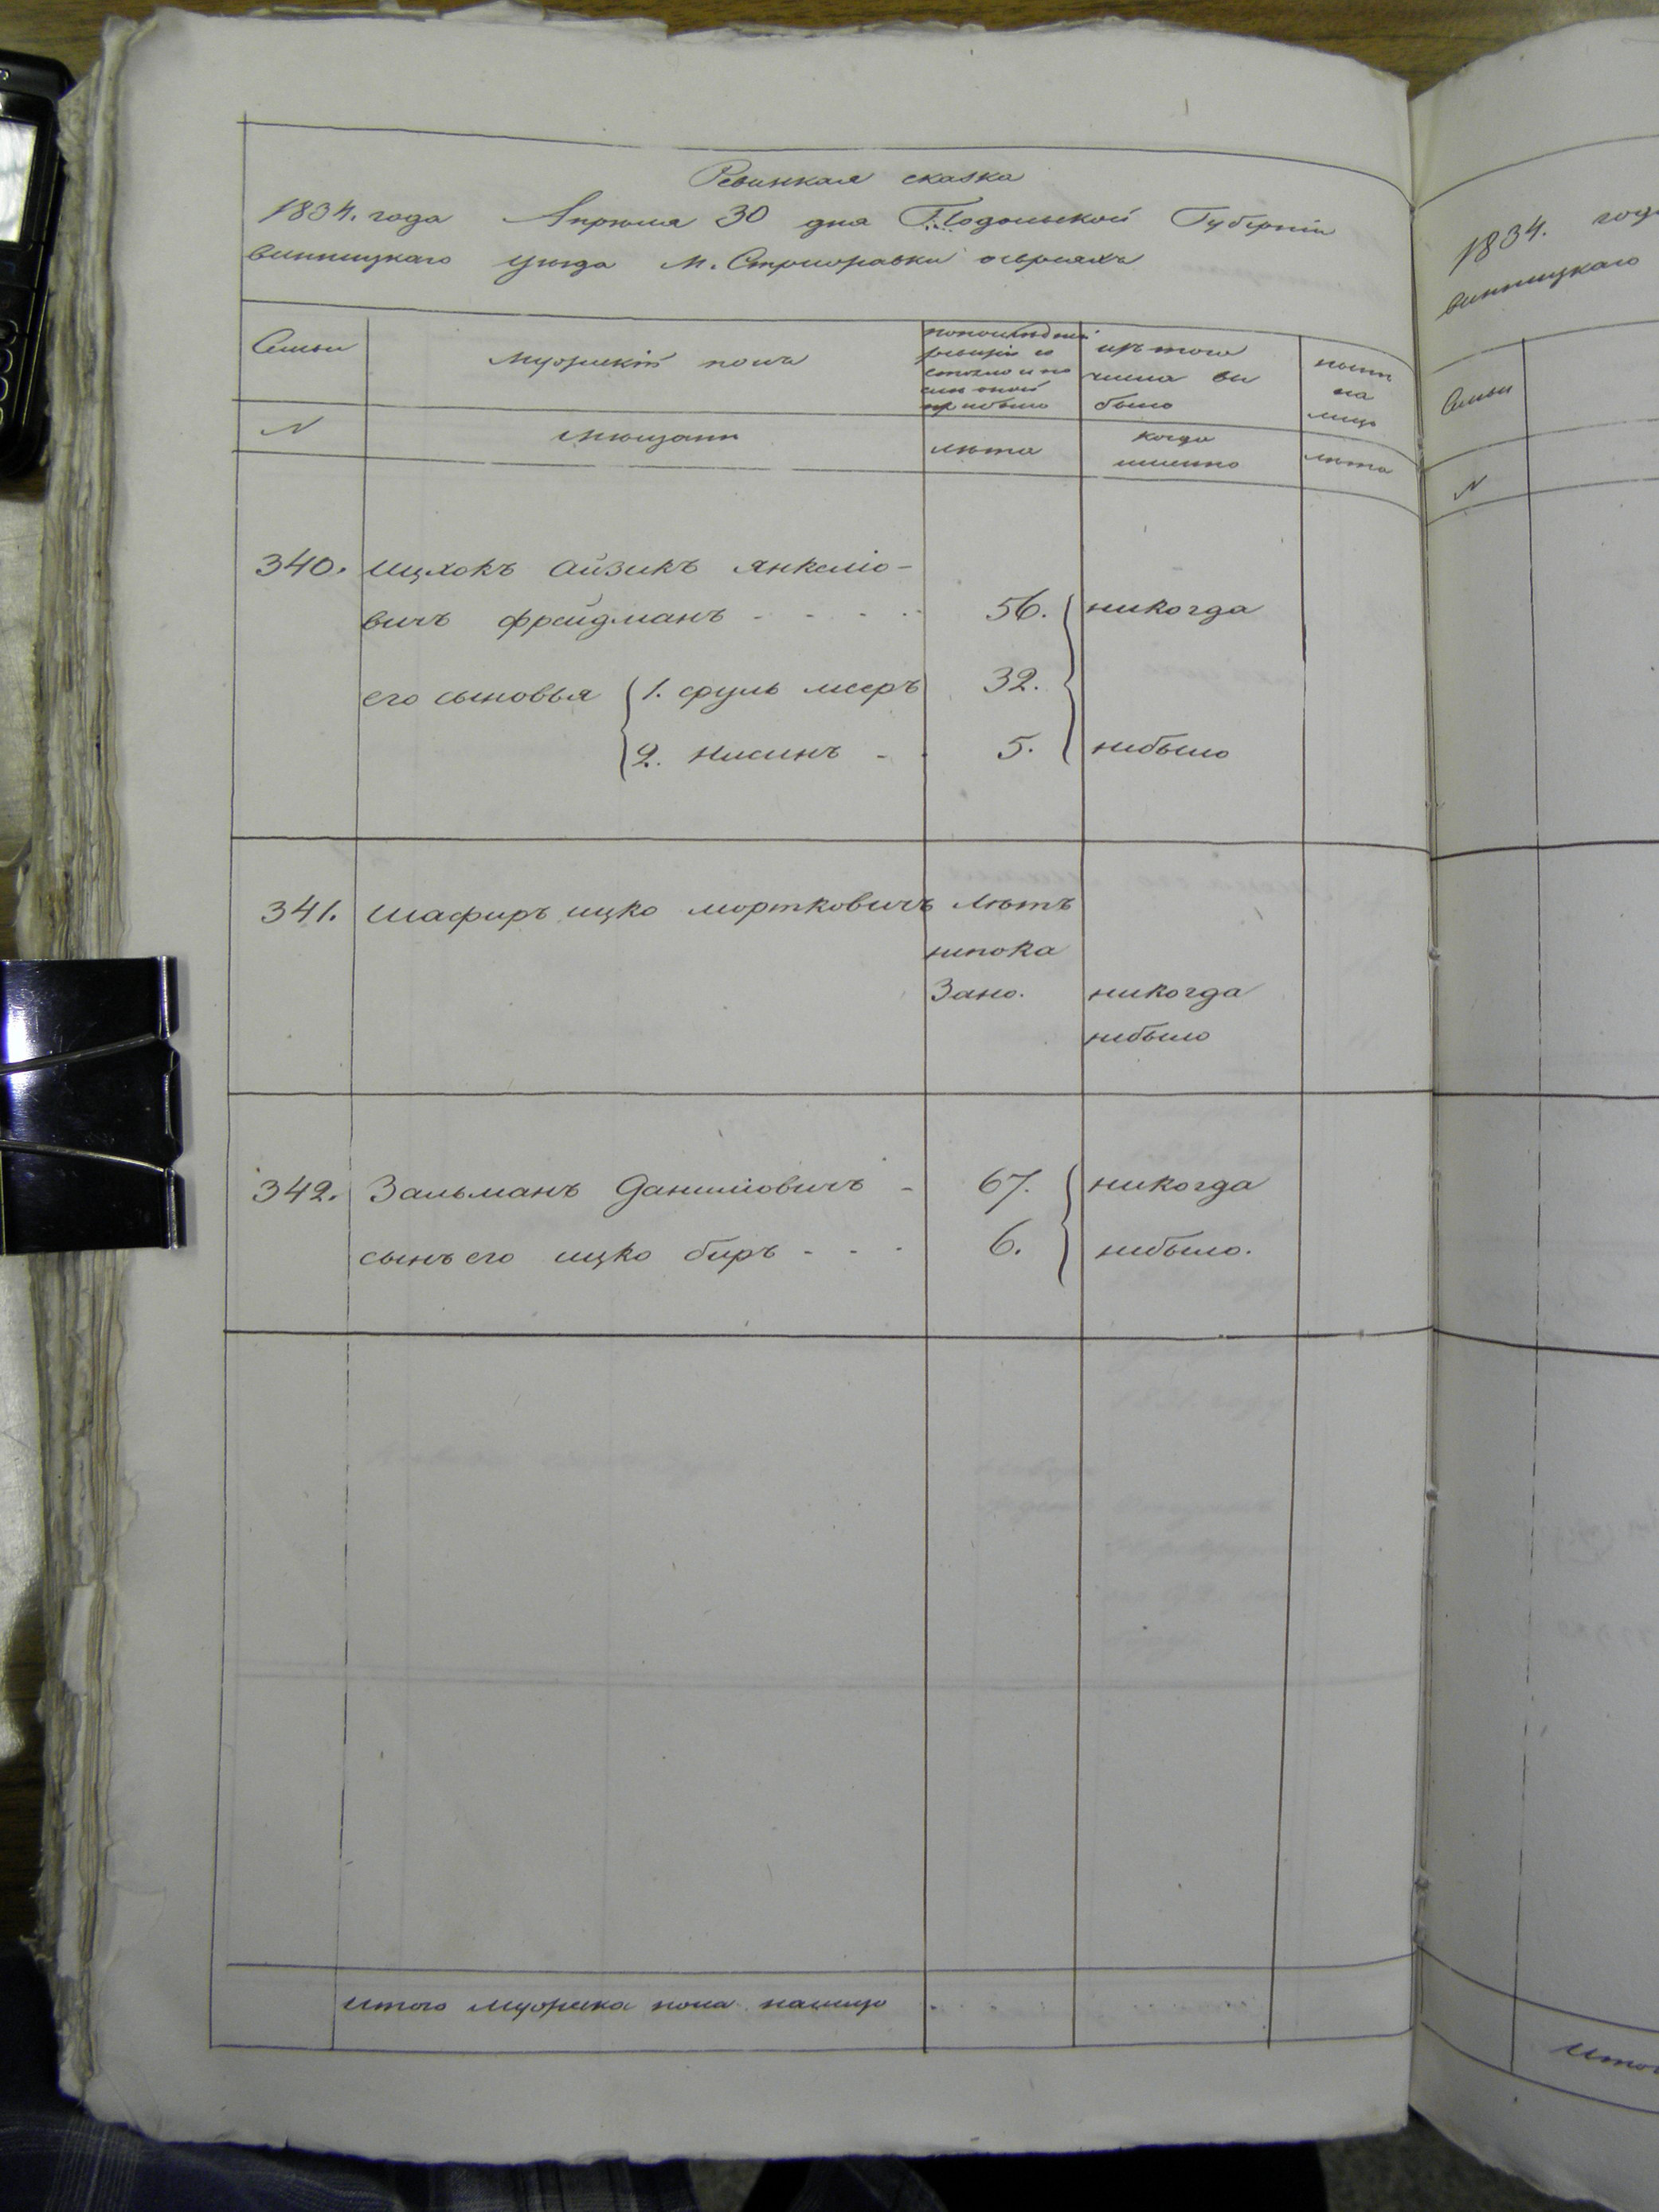 Ревизкая сказка
1834. года Апреля 30 дня Подольской Губерніи
винницкаго уезда м. Стрижавки оевреяхъ
Семьи
Мужескій полъ
попоследней
ревизіи со
стояло и по
сле оной
прибыло
изъ того
числа вы
было
ныне
на
лицо
N
мещане
лета
когда
именно
лета
340. Ицхокъ Айзикъ Янкеліо-
вичъ фрейдманъ - - - - 56. никогда
его сыновья 1. сруль меер 32.
2. нисинъ - - 5. небыло
341. шафиръ ицко мортковичъ летъ
непока
зано. никогда
небыло
342. Зальманъ Даниліовичъ - 67. никогда
сынъ его ицко беръ - - - 6. небыло.
итого мужеска пола налицо
1834. года
винницкаго
Семьи
N
Итого